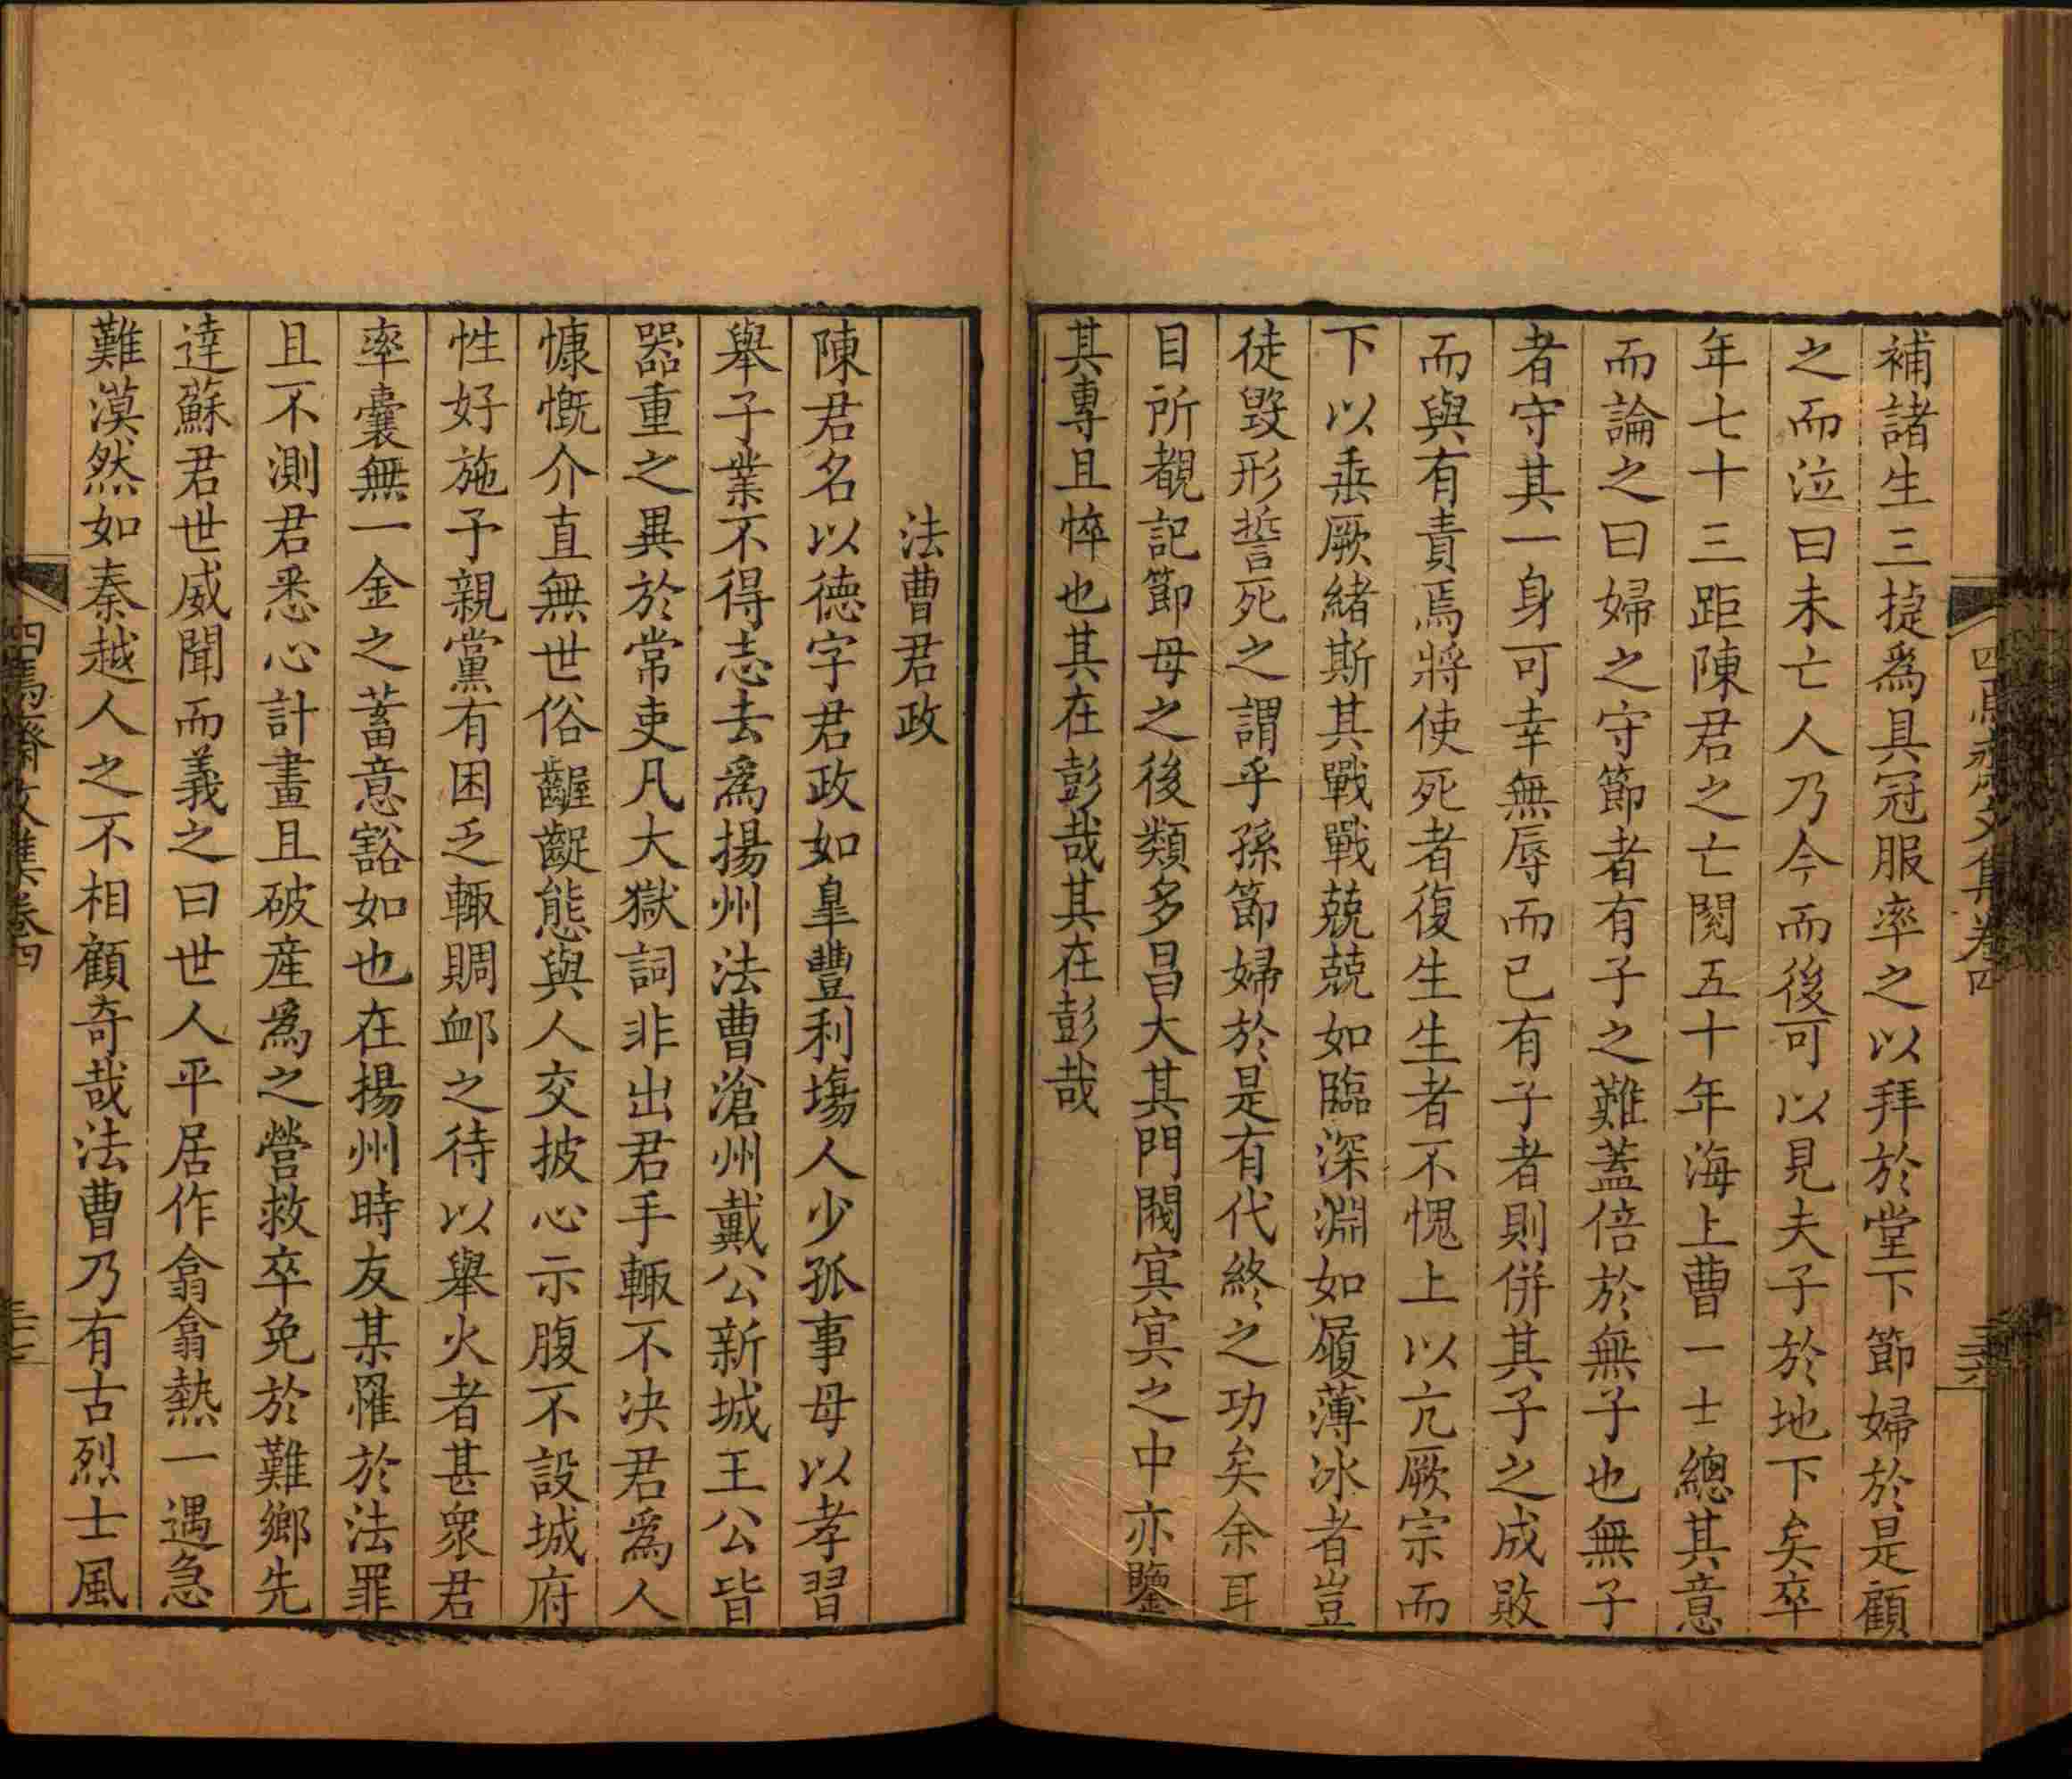 補諸生三㨗爲具冠服率之以拜於堂下節婦於是顧
之而泣曰未亡人乃今而後可以見夫子於地下矣卒
年七十三距陳君之亡閱五十年海上曹一士總其意
而論之曰婦之守節者有子之難蓋倍於無子也無子
者守其一身可幸無辱而已有子者則併其子之成敗
而與有責焉將使死者復生生者不愧上以亢厥宗而
下以垂厥緒斯其戰戰兢兢如臨深淵如履薄冰者豈
徒毀形誓死之謂乎孫節婦於是有代終之功矣余耳
目所覩記節母之後類多昌大其門閥㝠㝠之中亦鑒
其專且悴也其在彭哉其在彭哉
四焉齋文集卷四
三十六
法曹君政
陳君名以德字君政如臯豐利塲人少孤事母以孝習
舉子業不得志去爲揚州法曹滄州戴公新城王公皆
器重之異於常吏凡大獄詞非出君手輙不决君爲人
慷慨介直無世俗齷齪態與人交披心示腹不設城府
性好施予親黨有困乏輙賙卹之待以舉火者甚衆君
率囊無一金之蓄意豁如也在揚州時友某罹於法罪
且不測君悉心計畫且破産爲之營救卒免於難鄉先
達蘇君世威聞而義之曰世人平居作翕翕熱一遇急
難漠然如秦越人之不相顧奇哉法曹乃有古烈士風
四焉齋文集卷四
三十七